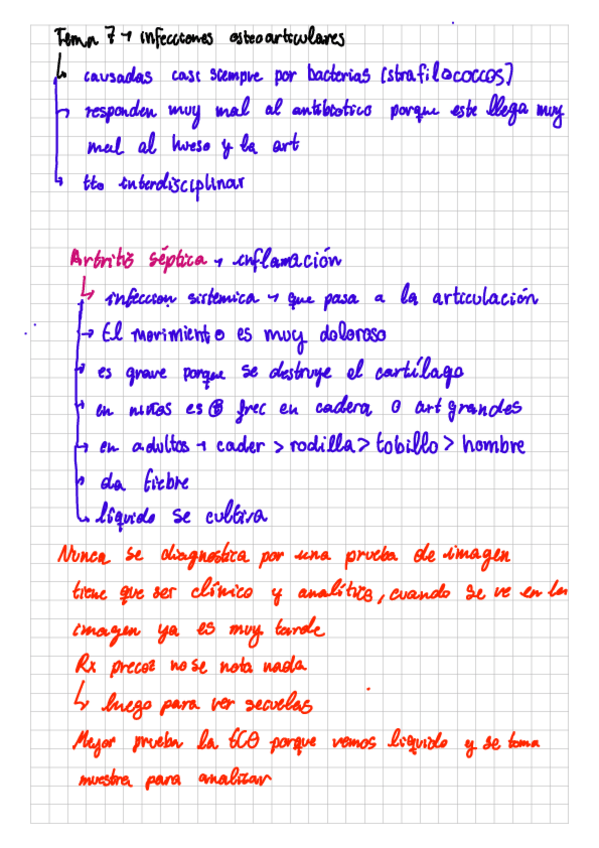 Tema 7 → infecciones osteoarticulares
↳ causadas casi siempre por bacterias (strafilococcos)
↳ responden muy mal al antibiotico porque este llega muy
mal al hueso y la art
↳ tto interdisciplinar
Artritis séptica → inflamación
↳ infeccion sistemica → que pasa a la articulación
→ El movimiento es muy doloroso
→ es grave porque se destruye el cartílago
→ en niños es ⊕ frec en cadera o art grandes
→ en adultos → cader > rodilla > tobillo > hombre
→ da fiebre
↳ líquido se cultiva
Nunca se diagnostica por una prueba de imagen
tiene que ser clínico y analítico, cuando se ve en la
imagen ya es muy tarde
Rx precoz no se nota nada
↳ luego para ver secuelas
Mejor prueba la eco porque vemos liquido y se toma
muestra para analizar